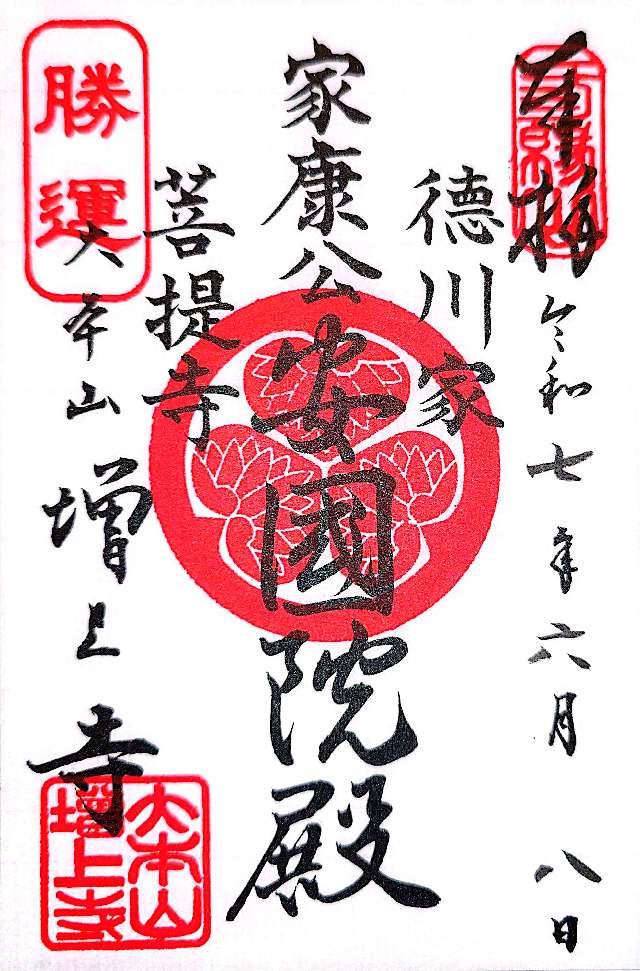 奉拝
令和七年六月八日
徳川家
家康公安國院殿
菩提寺
勝運
大本山増上寺
大本山
増上寺